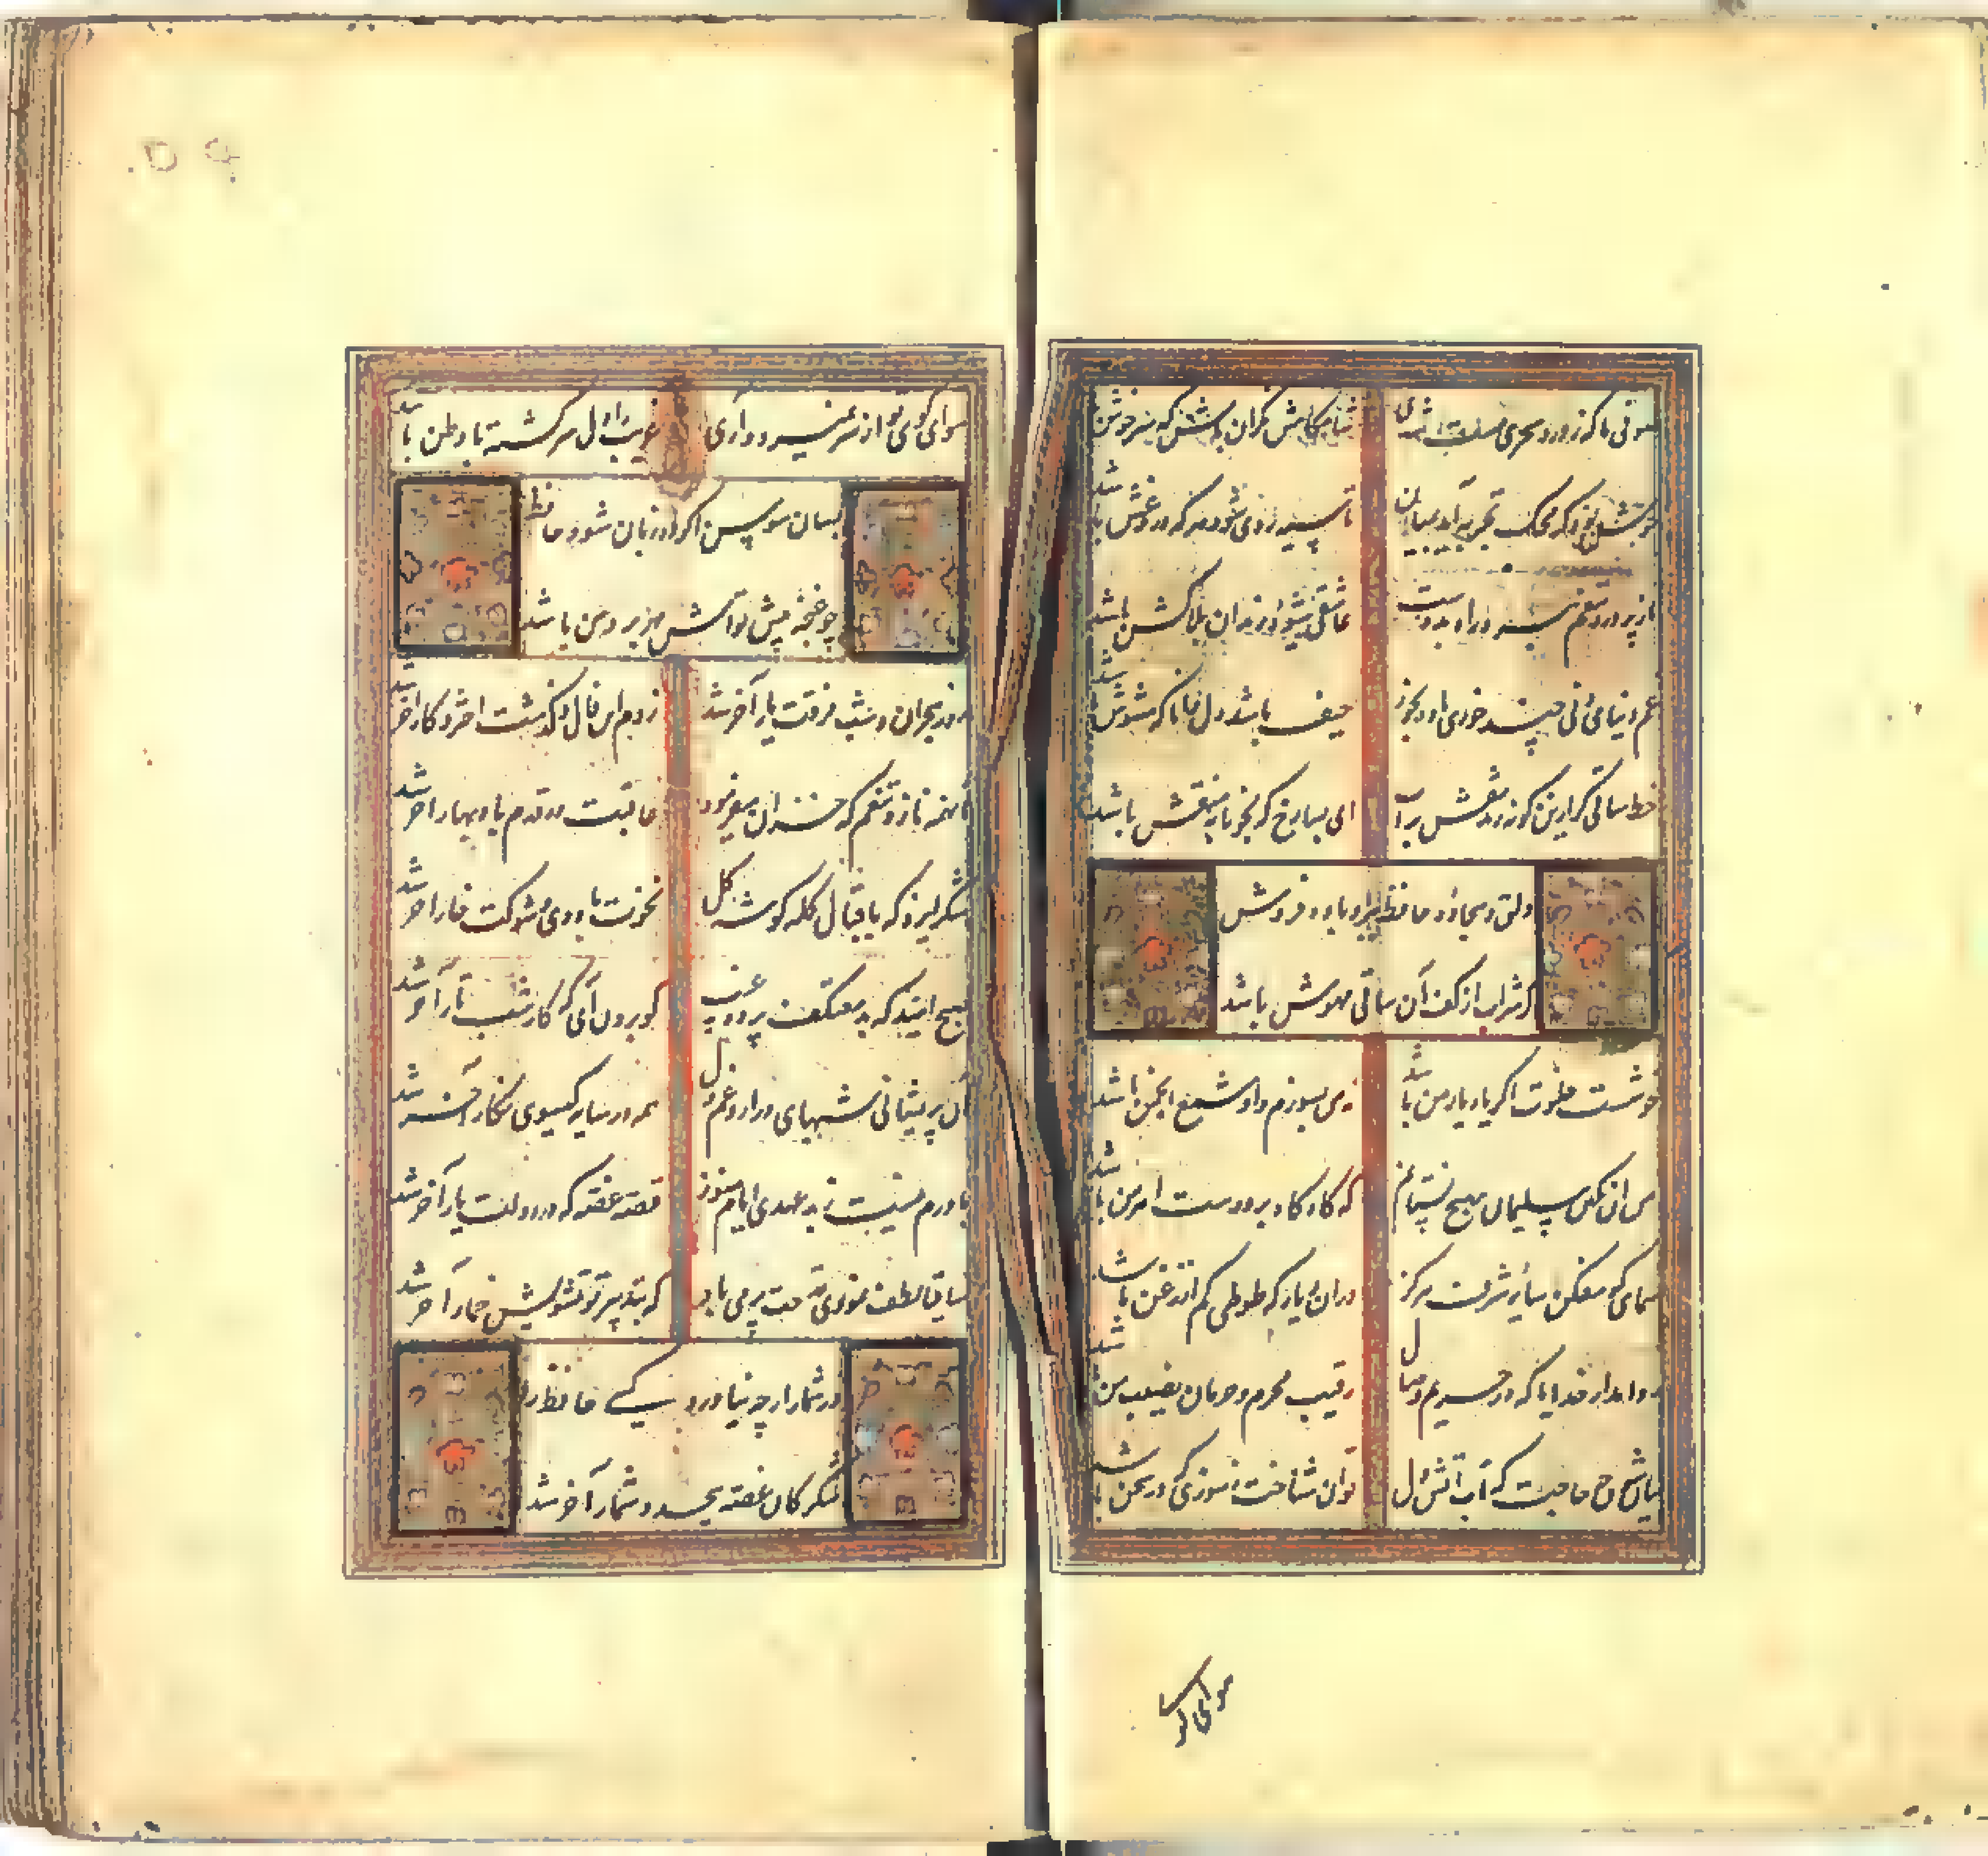 صوفی ما که ز ورد سحری مست شدی شامگاهش نگران باش که سرخوش باشد
خوش بود گر محک تجربه آید بمیان تا سیه روی شود هر که در او غش باشد
ناز پرورد تنعم نبرد راه بدوست عاشقی شیوه رندان بلاکش باشد
غم دنیای دنی چند خوری باده بخور حیف باشد دل دانا که مشوش باشد
خط ساقی گر ازین گونه زند نقش بر آب ای بسا رخ که بخونابه منقش باشد
دلق و سجاده حافظ ببرد باده فروش
گر شراب از کف آن ساقی مهوش باشد
خوشست خلوت اگر یار یار من باشد نه من بسوزم و او شمع انجمن باشد
من آن نگین سلیمان بهیچ نستانم که گاه گاه برو دست اهرمن باشد
همای گو مفکن سایه شرف هرگز در آن دیار که طوطی کم از زغن باشد
روا مدار خدایا که در حریم وصال رقیب محرم و حرمان نصیب من باشد
بیان شوق چه حاجت که آتش دل توان شناخت ز سوزی که در سخن باشد
هوای کو
هوای کوی تو از سر نمیرود آری غریب را دل سرگشته با وطن باشد
بسان سوسن اگر ده زبان شود حافظ
چو غنچه پیش تواش مهر بر دهن باشد
روز هجران و شب فرقت یار آخر شد زدم این فال و گذشت اختر و کار آخر شد
آن همه ناز و تنعم که خزان میفرمود عاقبت در قدم باد بهار آخر شد
شکر ایزد که باقبال کله گوشه گل نخوت باد دی و شوکت خار آخر شد
صبح امید که بد معتکف پرده غیب گو برون آی که کار شب تار آخر شد
آن پریشانی شبهای دراز و غم دل همه در سایه گیسوی نگار آخر شد
باورم نیست ز بد عهدی ایام هنوز قصه غصه که در دولت یار آخر شد
ساقیا لطف نمودی قدحت پر می باد که بتدبیر تو تشویش خمار آخر شد
در شمار ار چه نیاورد کسی حافظ را
شکر کان غصه بیحد و شمار آخر شد